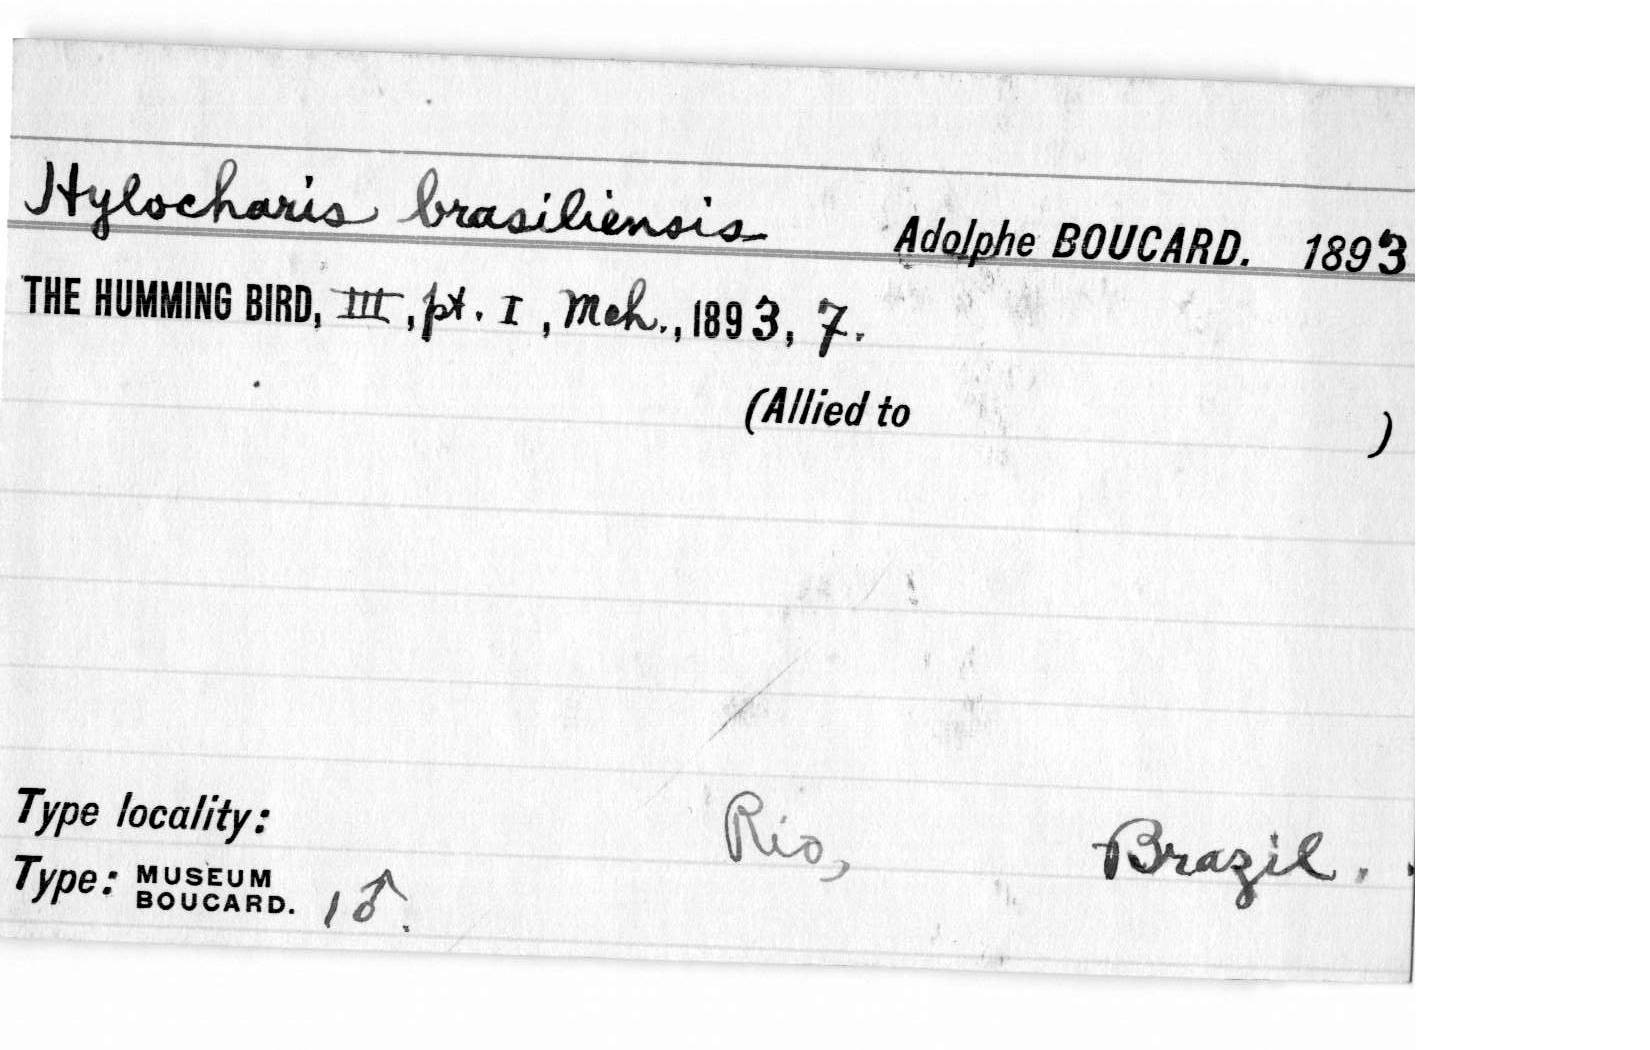 Hylocharis brasiliensis Adolphe BOUCARD. 1893
THE HUMMING BIRD, III, pt. I, Mch., 1893, 7.
(Allied to )
Type locality: Rio, Brazil.
Type: MUSEUM BOUCARD. 1♂.